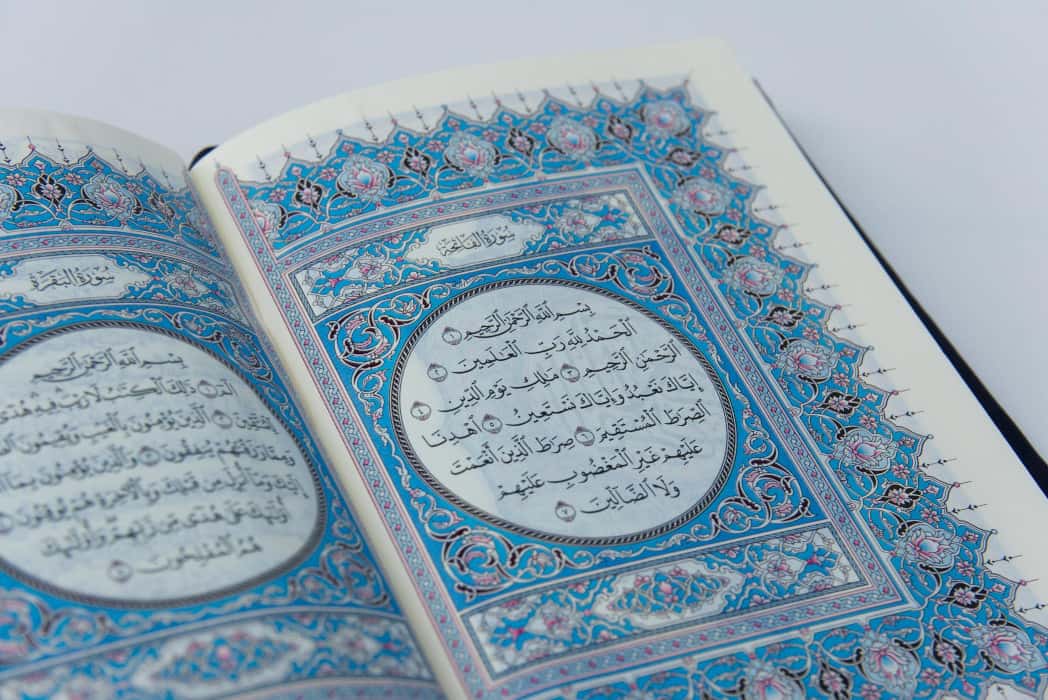 سُورَةُ الْفَاتِحَةِ
بِسْمِ اللَّهِ الرَّحْمَٰنِ الرَّحِيمِ ١
الْحَمْدُ لِلَّهِ رَبِّ الْعَٰلَمِينَ ٢
الرَّحْمَٰنِ الرَّحِيمِ ٣ مَٰلِكِ يَوْمِ الدِّينِ ٤
إِيَّاكَ نَعْبُدُ وَإِيَّاكَ نَسْتَعِينُ ٥ اهْدِنَا
الصِّرَٰطَ الْمُسْتَقِيمَ ٦ صِرَٰطَ الَّذِينَ أَنْعَمْتَ
عَلَيْهِمْ غَيْرِ الْمَغْضُوبِ عَلَيْهِمْ
وَلَا الضَّالِّينَ ٧
سُورَةُ الْبَقَرَةِ
بِسْمِ اللَّهِ الرَّحْمَٰنِ الرَّحِيمِ
الم ١ ذَٰلِكَ الْكِتَٰبُ لَا رَيْبَ فِيهِ هُدًى
لِلْمُتَّقِينَ ٢ الَّذِينَ يُؤْمِنُونَ بِالْغَيْبِ وَيُقِيمُونَ
وَمِمَّا رَزَقْنَٰهُمْ يُنْفِقُونَ ٣ وَالَّذِينَ يُؤْمِنُونَ بِمَا
إِلَيْكَ وَمَا أُنْزِلَ مِنْ قَبْلِكَ وَبِالْآخِرَةِ هُمْ يُوقِنُونَ
أُولَٰئِكَ عَلَىٰ هُدًى مِنْ رَبِّهِمْ وَأُولَٰئِكَ
هُمُ الْمُفْلِحُونَ ٥